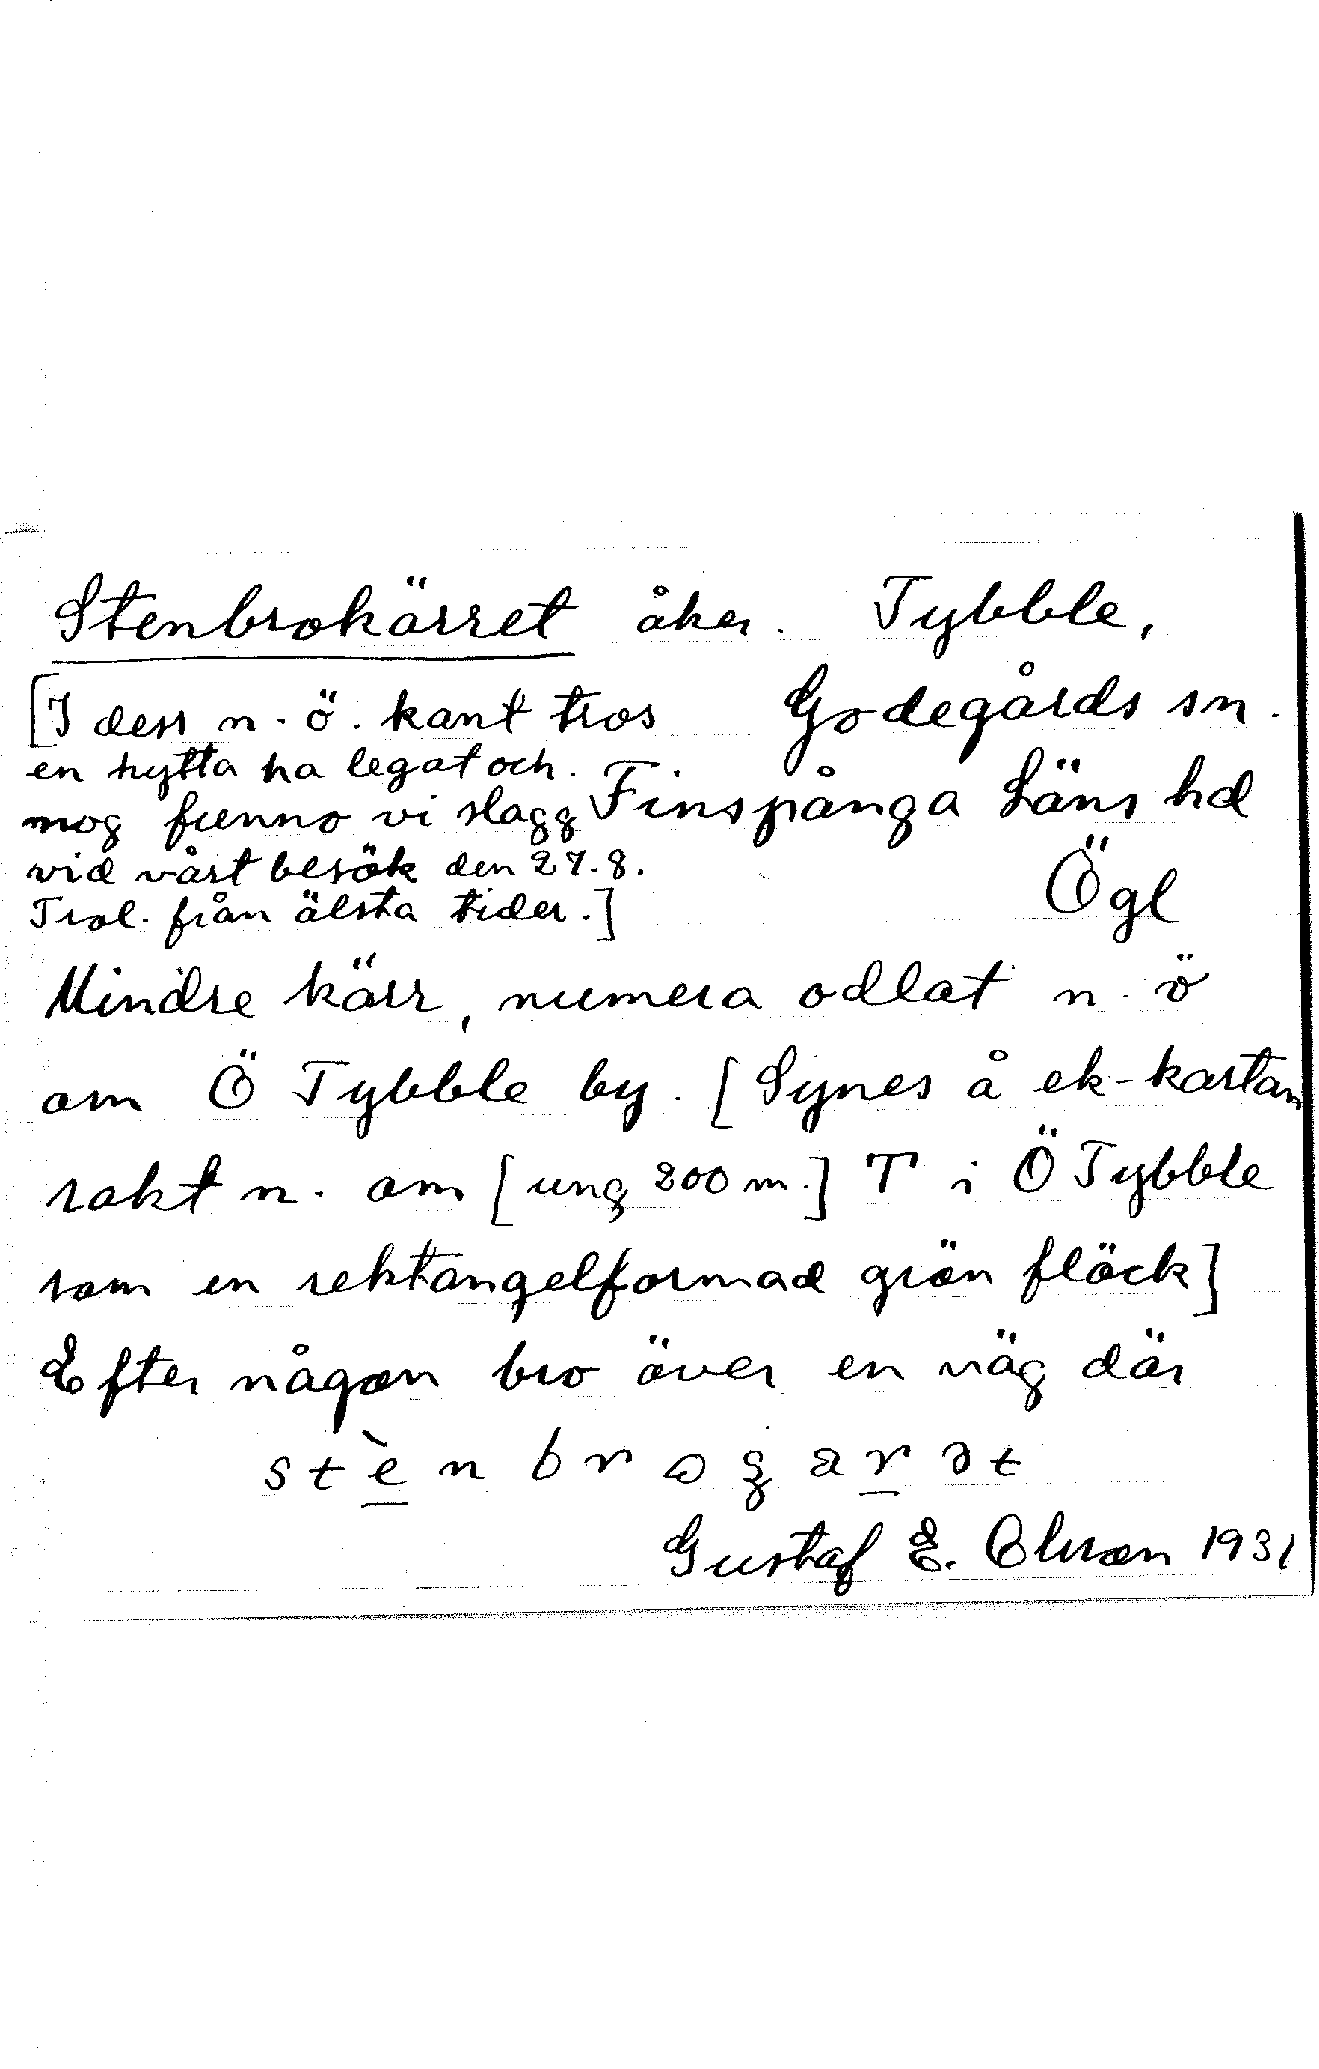 Stenbrokärret åker. Tybble,
Godegårds sn.
Finspånga Läns hd
Ögl
[I dess n. ö. kant tros
en hytta ha legat och
mog funno vi slagg
vid vårt besök den 27.8.
Trol. från älsta tider.]
Mindre kärr, numera odlat n. ö
om Ö Tybble by. [Synes å ek-kartan
rakt n. om [ung 200 m.] T i Ö Tybble
som en rektangelformad grön fläck]
Efter någon bro över en väg där
Gustaf E. Olsson 1931